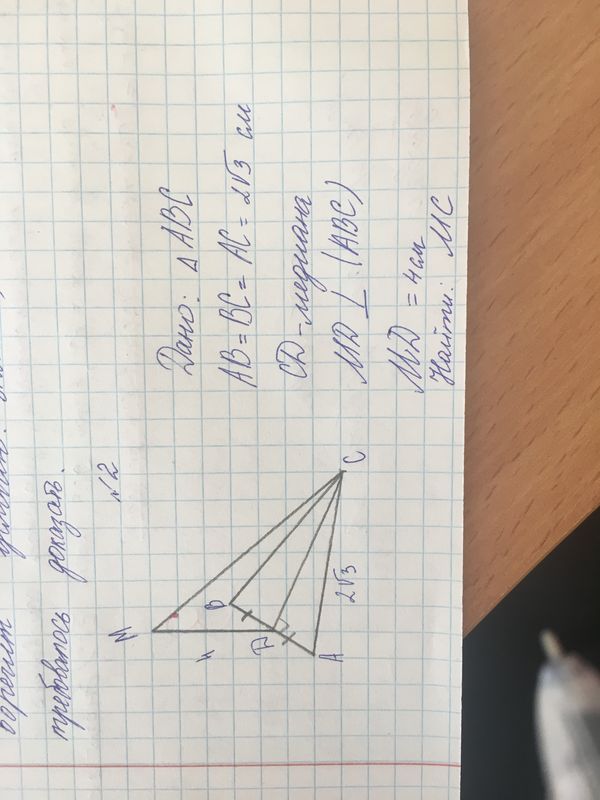 требовалось доказать.
№2
Дано: Δ ABC
AB = BC = AC = 2√3 см
CD - медиана
MD ⊥ (ABC)
MD = 4 см
Найти: MC
M
4
B
D
A
2√3
C